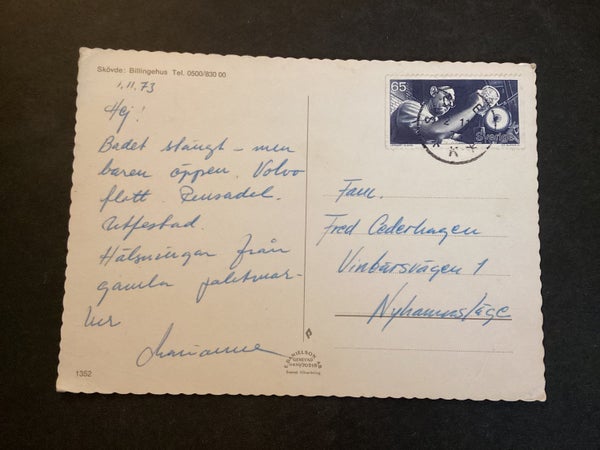 Skövde: Billingehus Tel. 0500/830 00
1.11.73
Hej!
Badet stängt – men
baren öppen. Volvo
flott. Rensadel.
Utfestad.
Hälsningar från
gamla
Marianne
1352
65
Sverige
Fam.
Fred Cederhagen
Vinbärsvägen 1
Nyhamnsläge
E. DANIELSON
GENEVAD
Svensk tillverkning